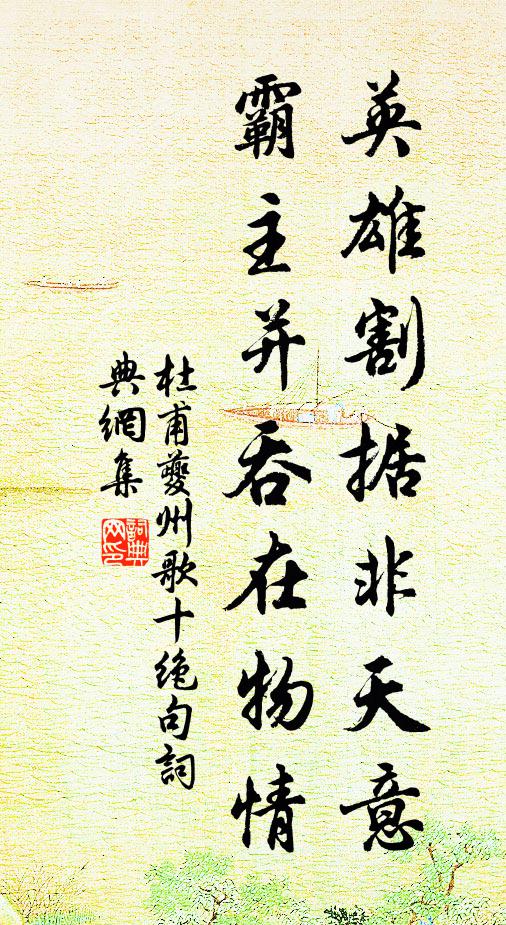 英雄割据非天意
霸主并吞在物情
杜甫夔州歌十绝句詞
典網集
詞典
网印